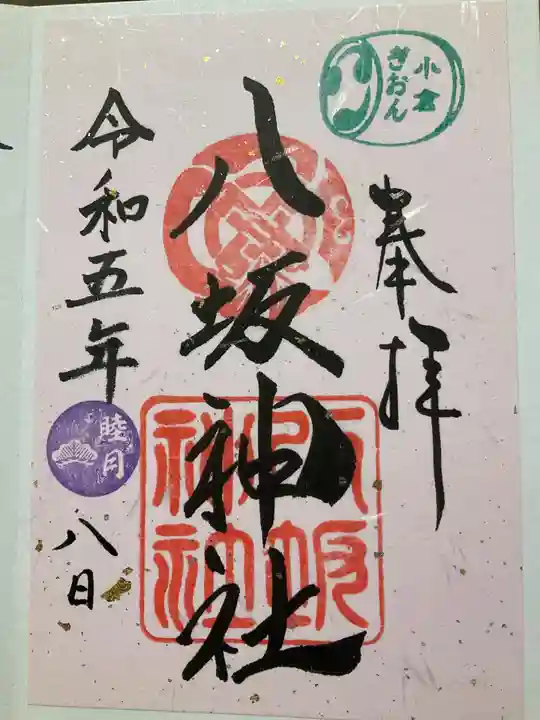 小倉
ぎおん
奉拝
八坂神社
八坂
神社
令和五年
睦月
八日